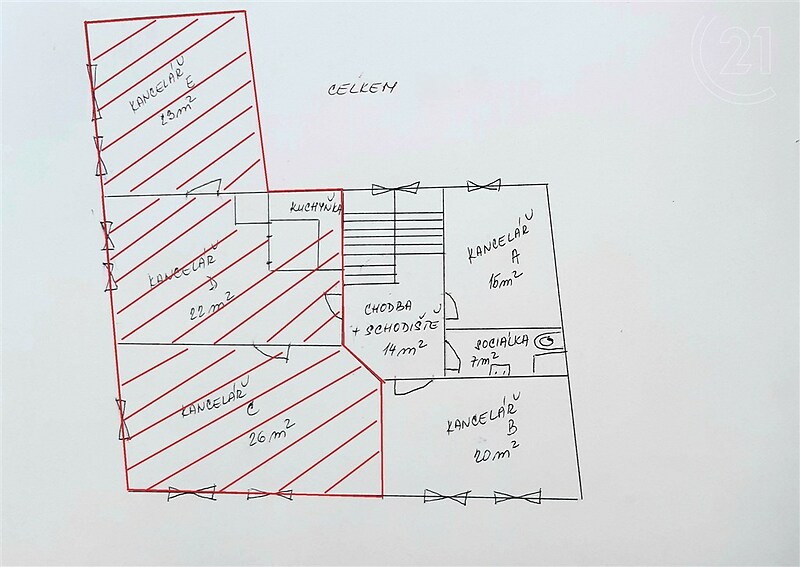 21
CELKEM
KANCELÁŘ
E
23m²
KUCHYŇKA
KANCELÁŘ
D
22m²
KANCELÁŘ
A
15m²
CHODBA
+ SCHODIŠTĚ
14m²
SOCIÁLKA
7m²
KANCELÁŘ
C
26m²
KANCELÁŘ
B
20m²